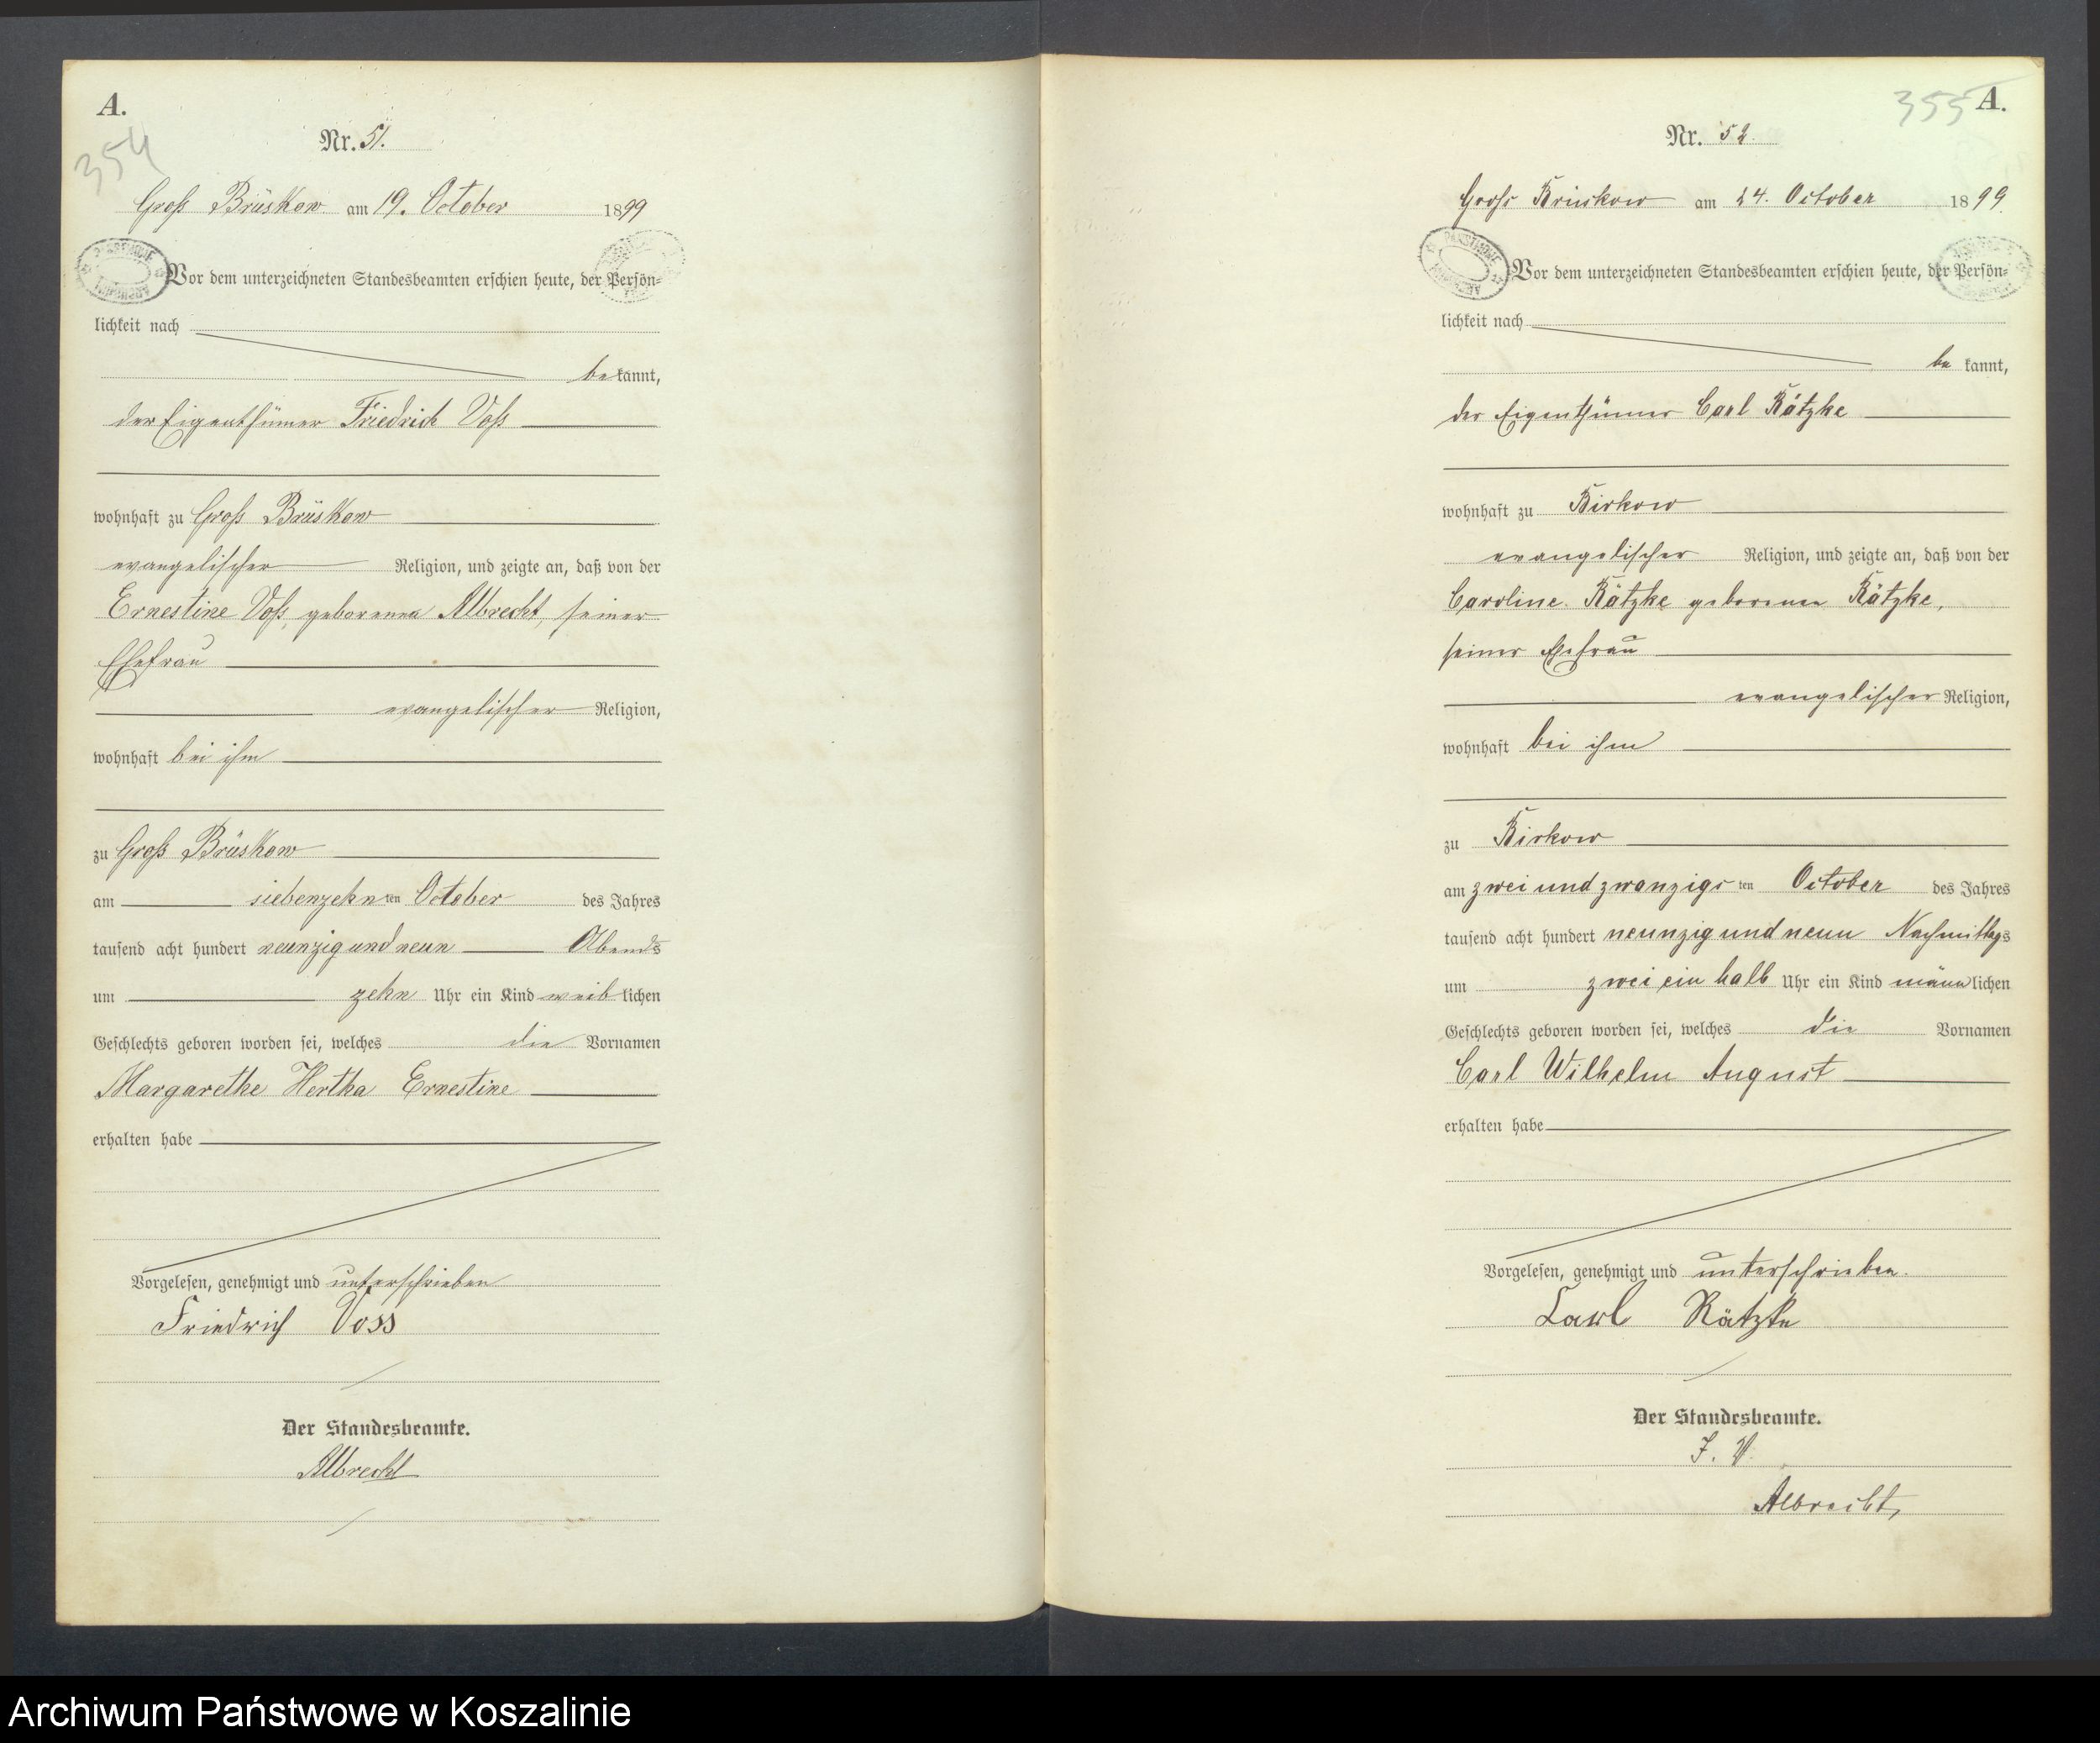 A.
354
Nr. 51.
Groß Brüskow am 19. October 1899
Vor dem unterzeichneten Standesbeamten erschien heute, der Persön=
lichkeit nach
bekannt,
der Eigenthümer Friedrich Voß
wohnhaft zu Groß Brüskow
evangelischer Religion, und zeigte an, daß von der
Ernestine Voß, geborenen Albrecht, seiner
Ehefrau
evangelischer Religion,
wohnhaft bei ihm
zu Groß Brüskow
am siebenzehnten October des Jahres
tausend acht hundert neunzig und neun Abends
um zehn Uhr ein Kind weiblichen
Geschlechts geboren worden sei, welches die Vornamen
Margarethe Hertha Ernestine
erhalten habe
Vorgelesen, genehmigt und unterschrieben
Friedrich Voss
Der Standesbeamte.
Albrecht
355
A.
Nr. 52.
Gross Brüskow am 24. October 1899.
Vor dem unterzeichneten Standesbeamten erschien heute, der Persön=
lichkeit nach
bekannt,
der Eigenthümer Carl Rätzke
wohnhaft zu Birkow
evangelischer Religion, und zeigte an, daß von der
Caroline Rätzke geborenen Rätzke,
seiner Ehefrau
evangelischer Religion,
wohnhaft bei ihm
zu Birkow
am zwei und zwanzigsten October des Jahres
tausend acht hundert neunzig und neun Nachmittags
um zwei ein halb Uhr ein Kind männlichen
Geschlechts geboren worden sei, welches die Vornamen
Carl Wilhelm August
erhalten habe
Vorgelesen, genehmigt und unterschrieben.
Carl Rätzke
Der Standesbeamte.
J. V.
Albrecht,
Archiwum Państwowe w Koszalinie